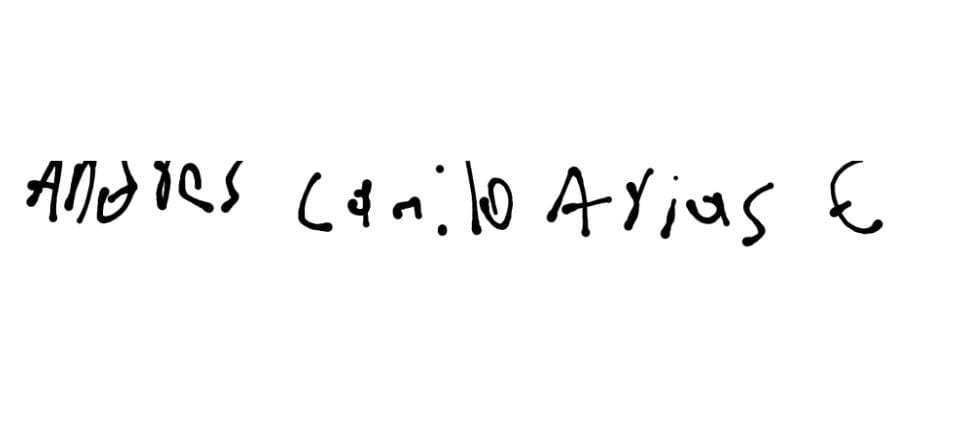 Andres Camilo Arias E